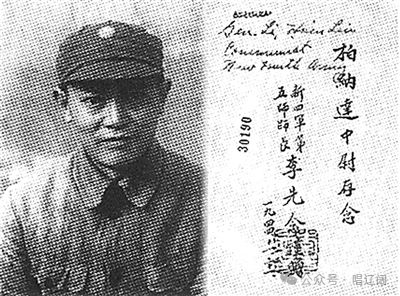 Gen. Li Hsien Lien
Communist
New Fourth Army
柏納達中尉存念
新四軍第
五師師長
李先念
30190
公众号·唱辽阔